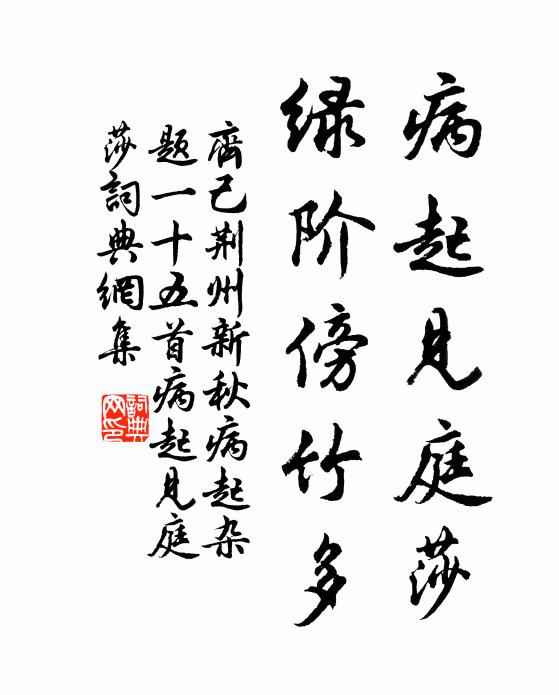 病起见庭莎
绿阶傍竹多
齊己荆州新秋病起杂
题一十五首病起见庭
莎詞典網集
詞典網印